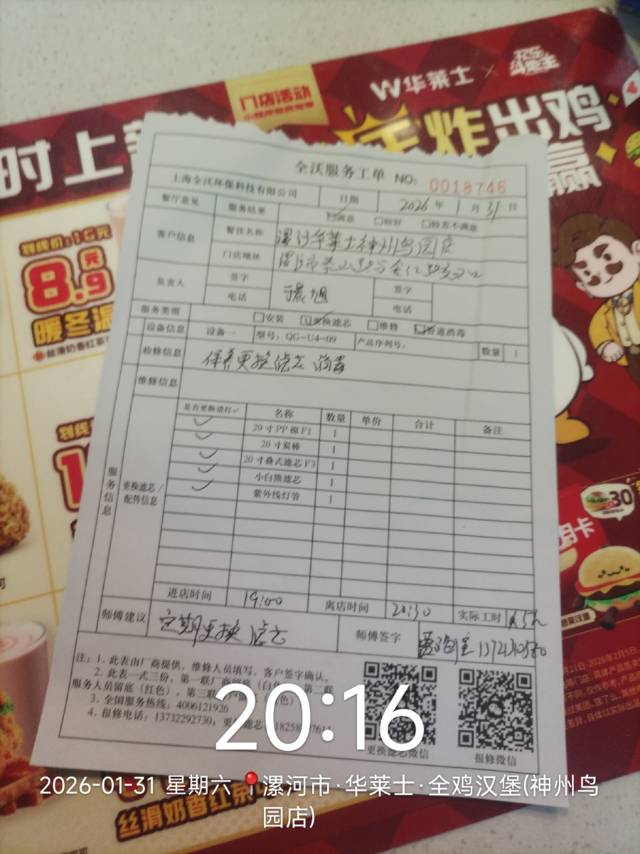 门店活动
W华莱士
时上
炸出鸡
赢
划线价:16元
8.9元
暖冬温
全沃服务工单 NO: 0018746
上海全沃环保科技有限公司 日期 2026 年 1 月 31 日
餐厅意见 服务结果 满意 较好 较差不满意
客户信息 餐饮名称 漯河华莱士神州鸟园店
门店地址
负责人 签字 签字
电话 电话
服务类别 安装 更换滤芯 维修 管道消毒
设备信息 设备一 型号: QG-U4-09 产品序列号: 数量 1
检修信息 保养更换滤芯 消毒
维修信息
服务信息 更换滤芯/配件信息
是否更换请打✓ 名称 数量 单价 合计 备注
✓ 20寸PP棉F1 1
✓ 20寸炭棒 1
✓ 20寸叠式滤芯F3 1
✓ 小白熊滤芯 1
✓ 紫外线灯管 1
进店时间 19:00 离店时间 20:30 实际工时
师傅建议 定期更换滤芯 师傅签字
注: 1. 此表由厂商提供, 维修人员填写, 客户签字确认。
2. 此表一式三份, 第一联厂商留底
服务人员留底(红色), 第三联
3. 全国服务热线: 4006121926
4. 报修电话: 13732292730,
更换滤芯微信 报修微信
20:16
2026-01-31 星期六 漯河市·华莱士·全鸡汉堡(神州鸟
园店)
丝滑奶香红茶